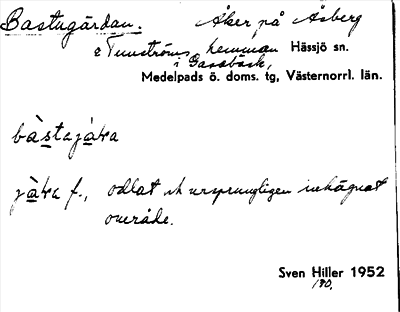 Bastugårdan. Åker på Åsberg
e Tunströms hemman Hässjö sn.
i Gassbäck,
Medelpads ö. doms. tg, Västernorrl. län.
bàstajạ̀ka
f., odlat ursprungligen inhägnat
område.
Sven Hiller 1952
180.